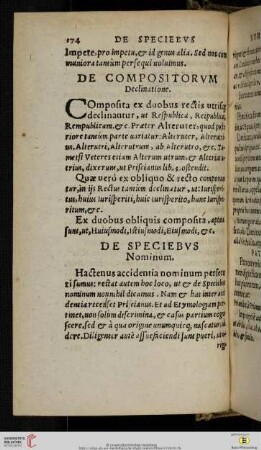 174 DE SPECIEBVS
Impete, pro impetu, & id genus alia. Sed nos com
muniora tantùm persequi uolumus.
DE COMPOSITORVM
Declinatione.
Composita ex duobus rectis utriusq
declinantur, ut Respublica, Reipublicæ,
Rempublicam, &c. Præter Alteruter, quod po
riore tantùm parte uariatur: Alteruter, Alterut
us, Alterutri, Alterutrum, ab Alterutro, &c. Ta
metsi Veteres etiam Alterum utrum, & Alterius
utrius, dixerunt, ut Priscianus lib. 5. ostendit.
Quæ uerò ex obliquo & recto componun
tur, in ijs Rectus tantùm declinatur, ut: Iurisperi
tus, huius Iurisperiti, huic iurisperito, hunc Iurispe
ritum, &c.
Ex duobus obliquis composita, aptota
sunt, ut, Huiusmodi, istiusmodi, Eiusmodi, &c.
DE SPECIEBVS
Nominum.
Hactenus accidentia nominum persecu
ti sumus: restat autem hoc loco, ut & de Speciebus
nominum nonnihil dicamus. Nam & has inter acci
dentia recenset Priscianus. Et ad Etymologiam per
tinet, non solùm discrimina, & casus partium cogno
scere, sed & à qua origine unumquodq, nascatur, ui
dere. Diligenter autē assuefaciendi sunt pueri, ut o
rig